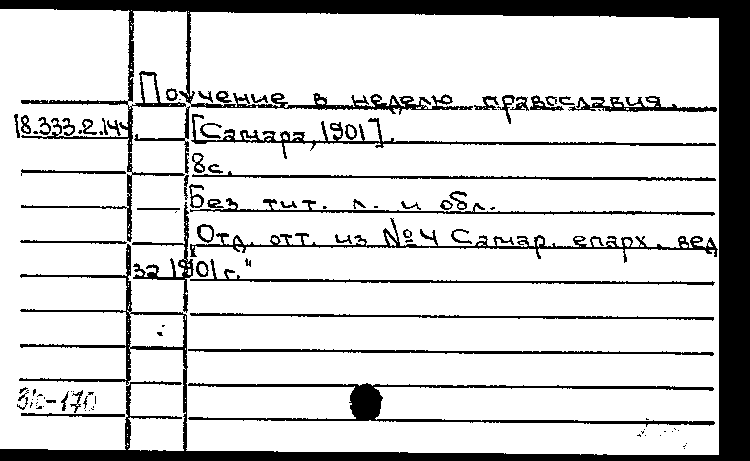 Поучение в неделю православия.
18.333.2.144. [Самара, 1901].
8с.
Без тит. л. и обл.
"Отд. отт. из №4 Самар. епарх. вед
за 1901 г."